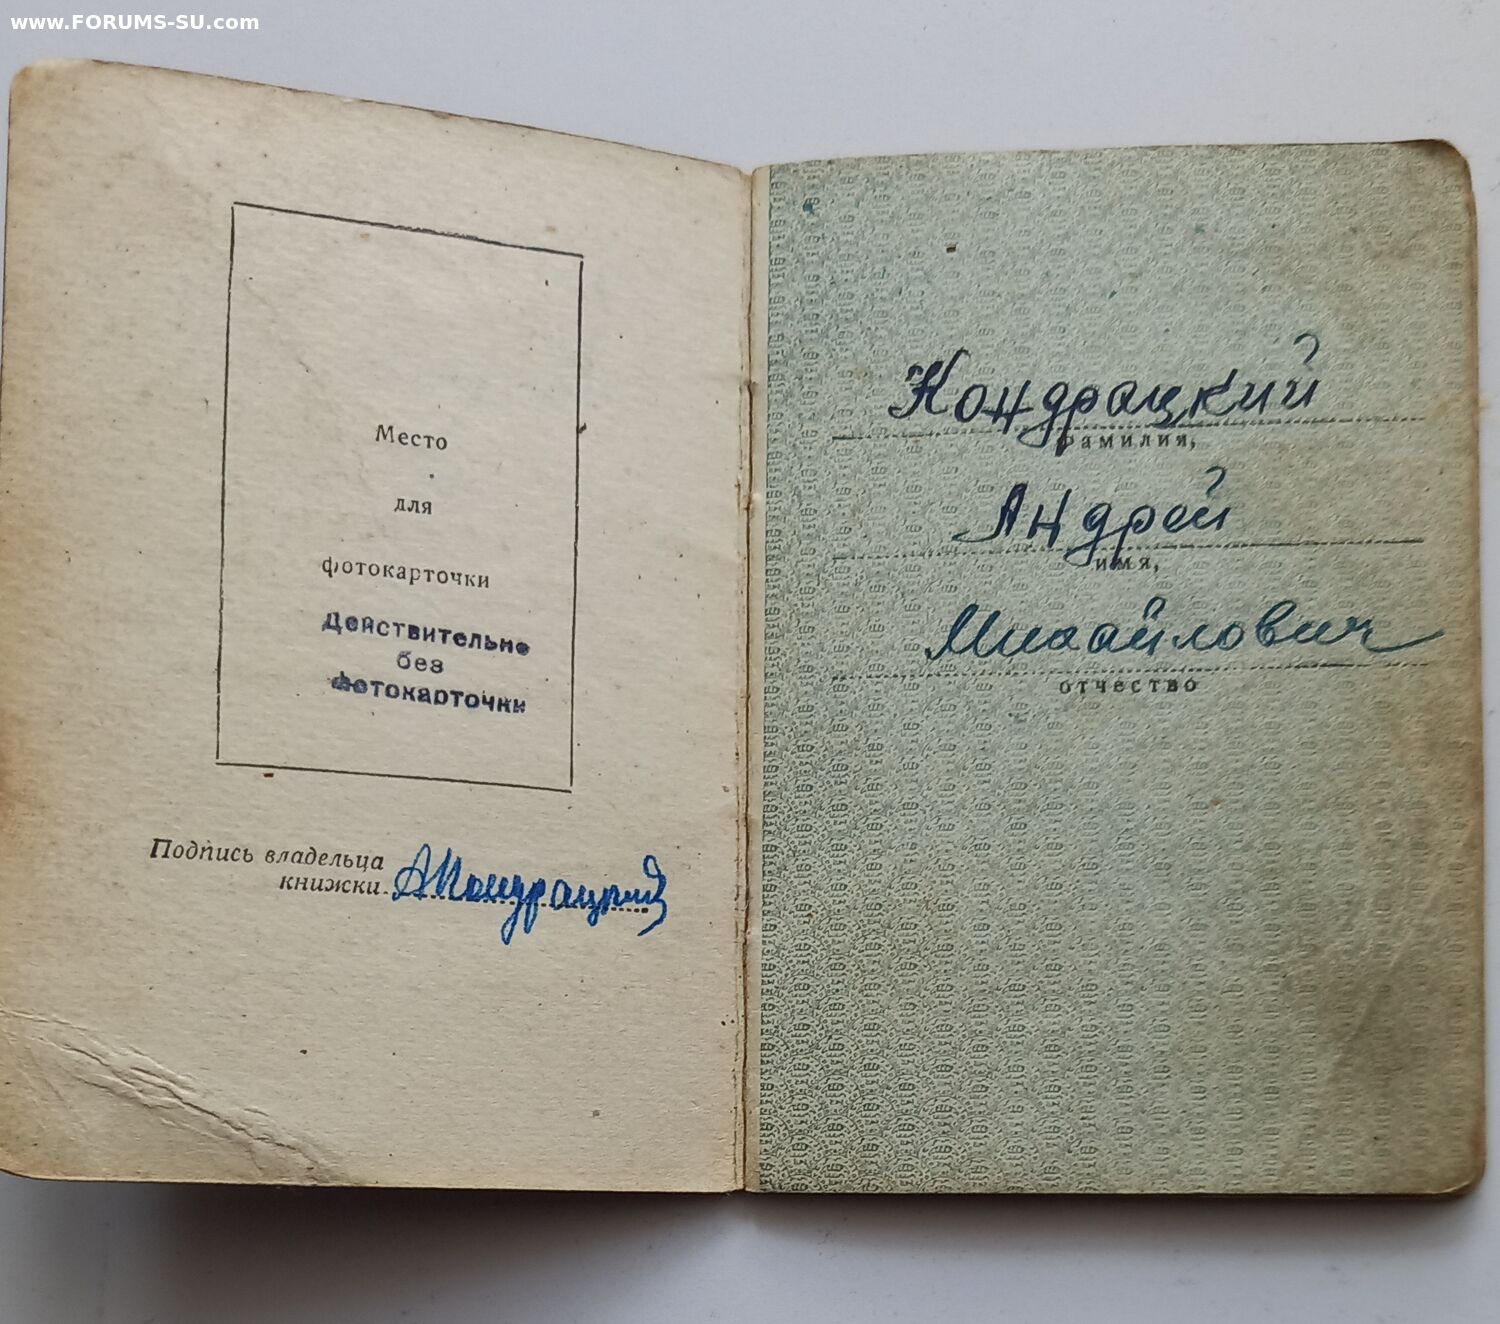 www.FORUMS-SU.com
Место
для
фотокарточки
Действительно
без
фотокарточки
Подпись владельца
книжки
АКондрацкий
Кондрацкий
фамилия,
Андрей
имя,
Михайлович
отчество